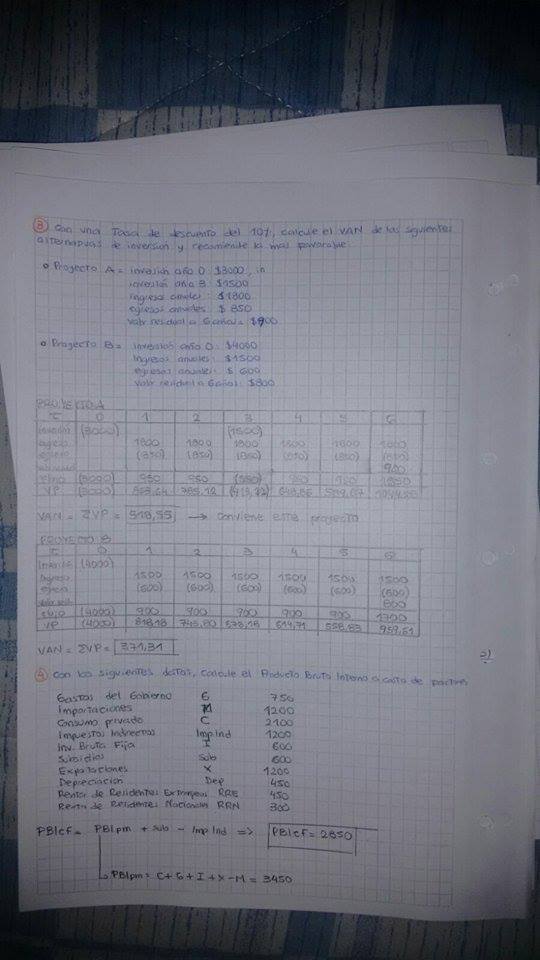 ③ Con una Tasa de descuento del 10%, calcule el VAN de las siguientes
alternativas de inversión y recomiende la mas favorable.
o Proyecto A = inversión año 0: $3000, in
inversión año 3: $1500
ingresos anuales: $1800
egresos anuales: $ 850
valor residual a 6 años = $900
o Proyecto B = inversión año 0: $4000
Ingresos anuales: $1500
egresos anuales: $ 600
Valor residual a 6 años: $800
PROYECTO A
T 0 1 2 3 4 5 6
Inversión (3000) (1500)
Ingreso 1800 1800 1800 1800 1800 1800
egreso (850) (850) (850) (850) (850) (850)
900
Flujo (3000) 950 950 (550) 950 950 1850
VP (3000) 863,64 785,12 (413,22) 648,86
VAN = ΣVP = 518,55 → Conviene este proyecto
PROYECTO B
T 0 1 2 3 4 5 6
Inversión (4000)
Ingreso 1500 1500 1500 1500 1500 1500
egreso (600) (600) (600) (600) (600) (600)
Valor resid. 800
Flujo (4000) 900 900 900 900 900 1700
VP (4000) 818,18 743,80 676,18 614,71 558,83 959,61
VAN = ΣVP = 371,31
2)
④ Con los siguientes datos, calcule el Producto Bruto Interno a costo de factores
Gastos del Gobierno G 750
Importaciones M 1200
Consumo privado C 2100
Impuestos Indirectos Imp Ind 1200
Inv. Bruta Fija I 600
Subsidios Sub 600
Exportaciones X 1200
Depreciación Dep 450
Renta de Residentes Extranjeros RRE 450
Renta de Residentes Nacionales RRN 300
PBIcf = PBIpm + Sub - Imp Ind => PBIcf = 2850
PBIpm = C + G + I + X - M = 3450